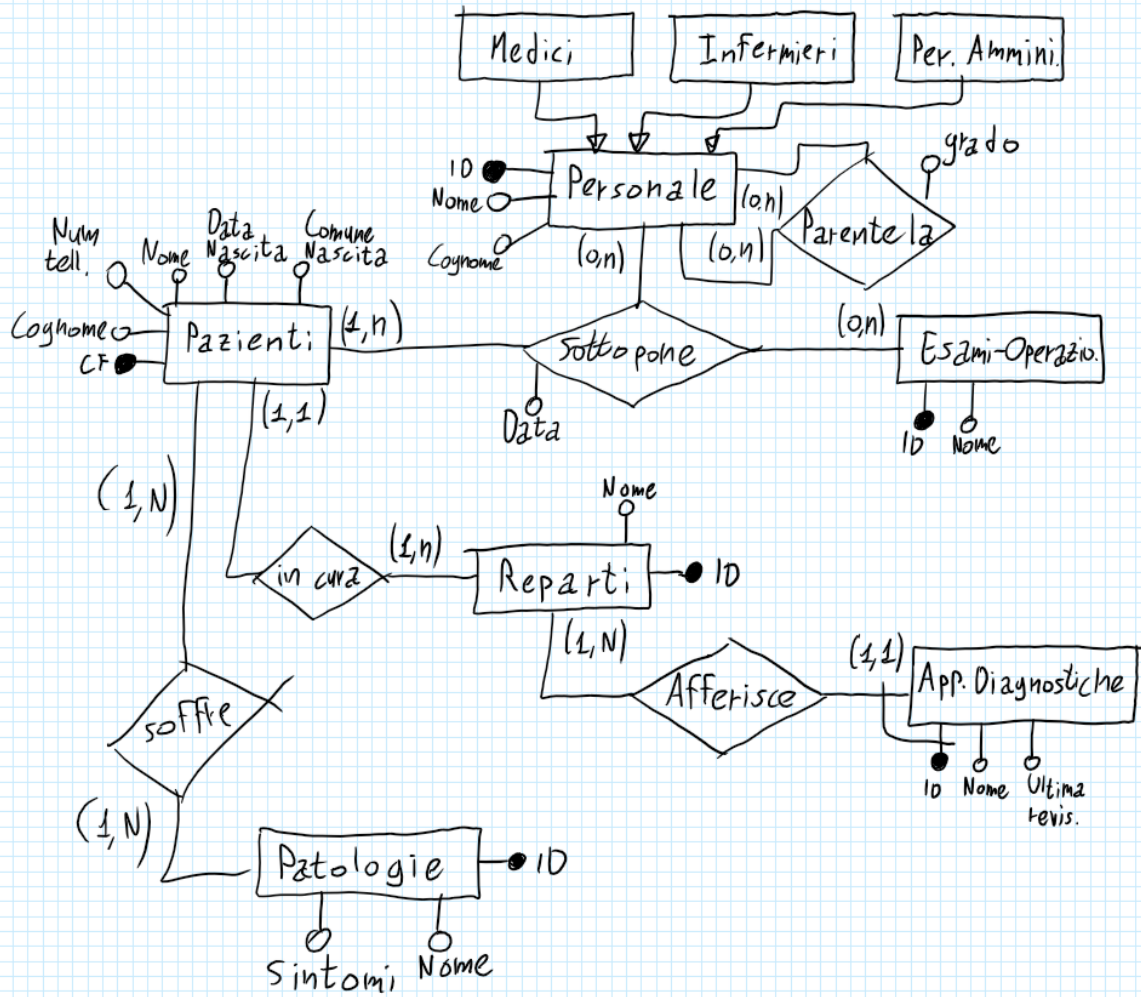 Medici
Infermieri
Per. Ammini.
ID
Nome
Cognome
Personale
(0,n)
(0,n)
(0,n)
grado
Parentela
Num
tell.
Nome
Data
Nascita
Comune
Nascita
Cognome
CF
Pazienti
(1,n)
(1,1)
(1,N)
Sottopone
Data
(0,n)
Esami-Operazio.
ID
Nome
in cura
(1,n)
Nome
Reparti
ID
(1,N)
Afferisce
(1,1)
App. Diagnostiche
ID
Nome
Ultima
revis.
soffre
(1,N)
Patologie
ID
Sintomi
Nome